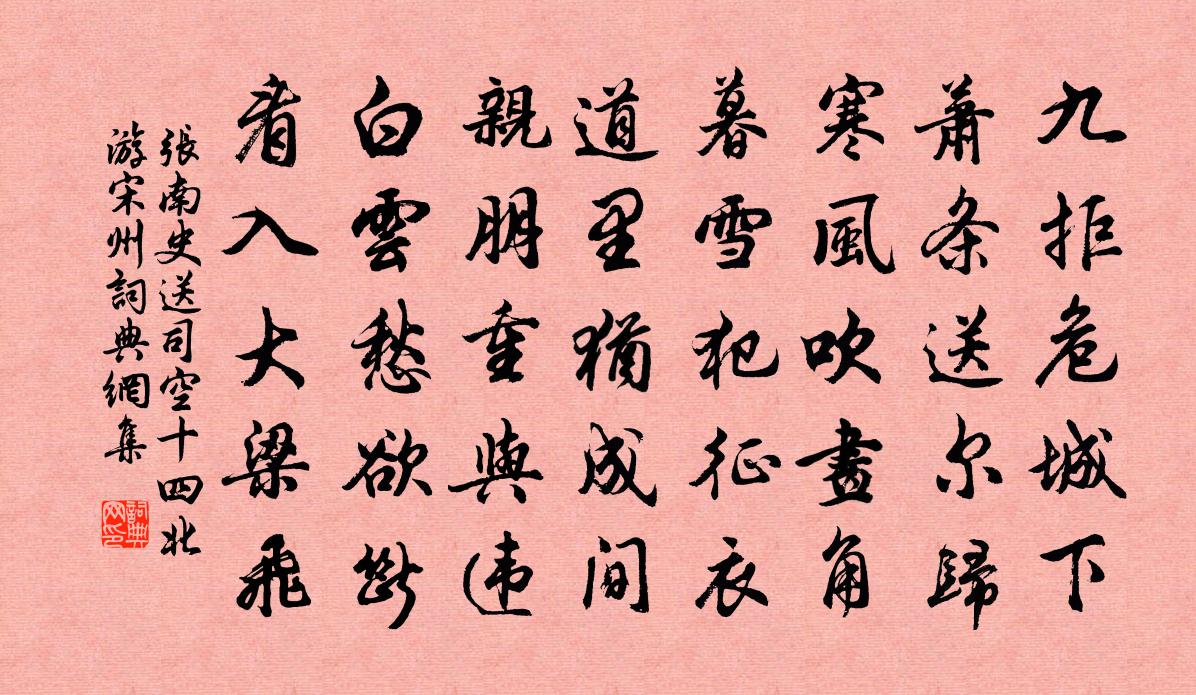 九拒危城下
蕭条送尔歸
寒風吹畫角
暮雪犯征衣
道里猶成间
親朋重與违
白雲愁欲斷
看入大梁飛
張南史送司空十四北
游宋州詞典網集
詞典网印